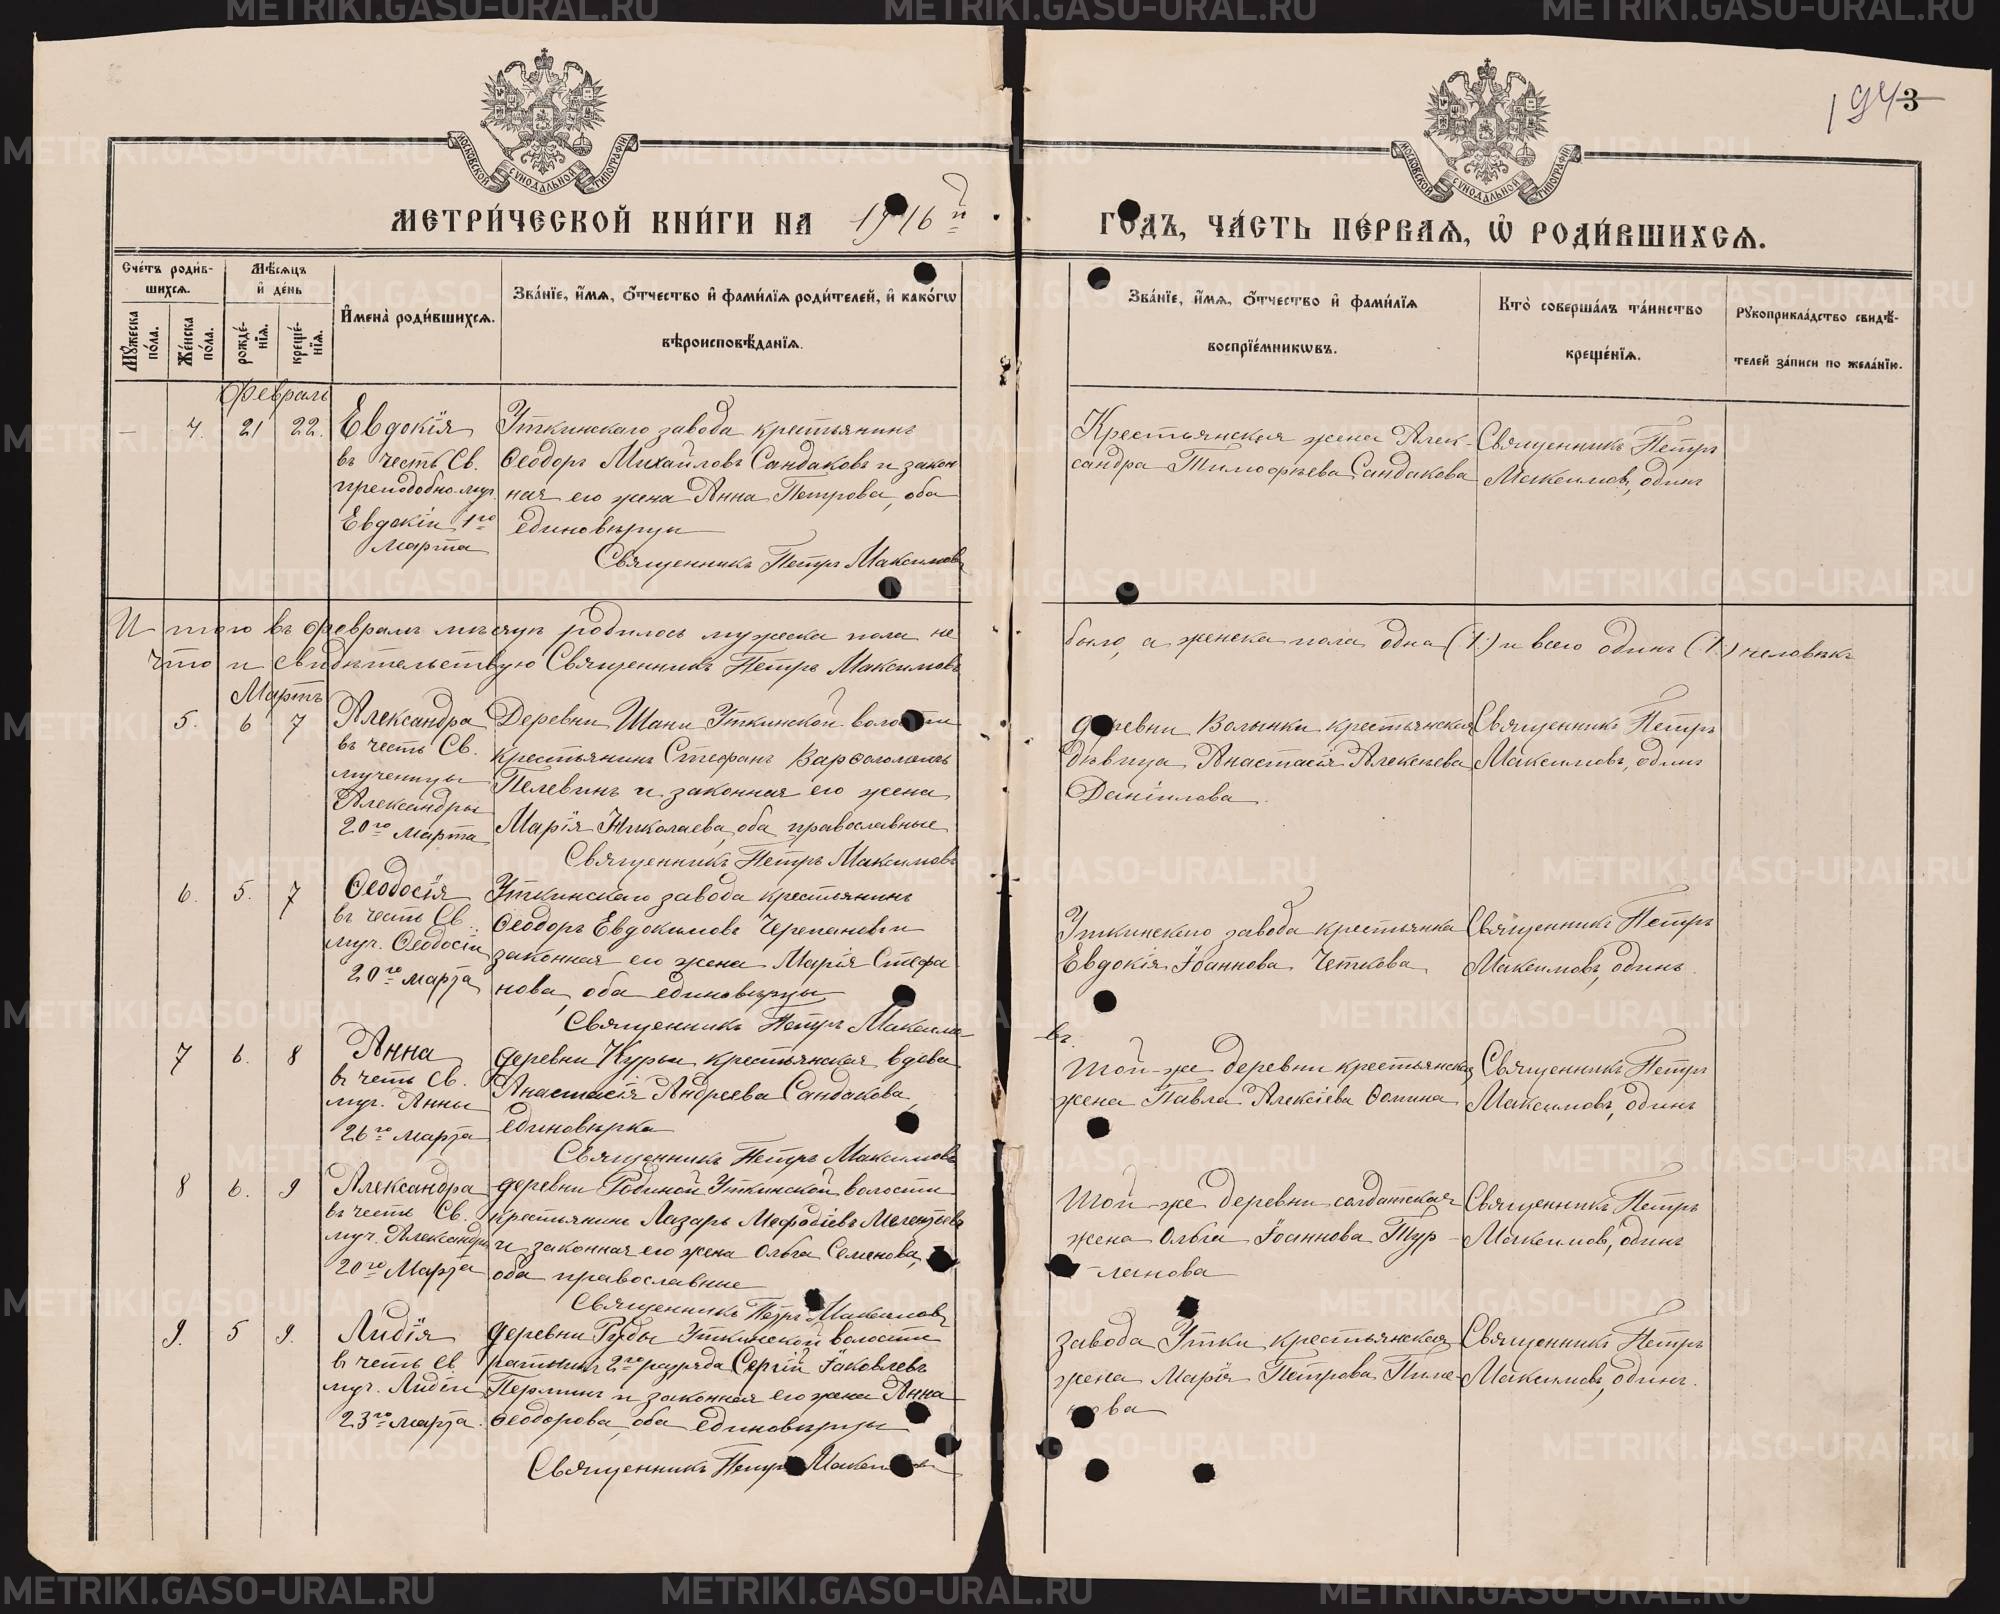 194 3
МОСКОВСКОЙ СѴНОДАЛЬНОЙ ТИПОГРАФІИ
МОСКОВСКОЙ СѴНОДАЛЬНОЙ ТИПОГРАФІИ
МЕТРИ́ЧЕСКОЙ КНИ́ГИ НА 1916 й
ГО́ДЪ, ЧА́СТЬ ПЕ́РВАѦ, Ѡ҆ РОДИ́ВШИХСѦ.
Сче́тъ роди́в-
шихсѧ.
Мѣ́сѧцъ
и҆ де́нь
Мꙋ́жеска по́ла.
Же́нска по́ла.
рожде́нїѧ.
креще́нїѧ.
И҆мена̀ роди́вшихсѧ.
Зва́нїе, и҆́мѧ, ѻ҆́тчество и҆ фами́лїѧ роди́телей, и҆ како́гѡ
вѣроисповѣ́данїѧ.
Зва́нїе, и҆́мѧ, ѻ҆́тчество и҆ фами́лїѧ
воспрїе́мникѡвъ.
Кто̀ соверша́лъ та́инство
креще́нїѧ.
Рꙋкоприкла́дство свидѣ́-
телей за́писи по жела́нїю.
Февраль
— 4. 21 22.
Евдокія
въ честь Св.
преподобно-муч.
Евдокіи 1го
марта
Уткинскаго завода крестьянинъ
Ѳеодоръ Михайловъ Сандаковъ и закон
ная его жена Анна Петрова, оба
единовѣрцы
Священникъ Петръ Максимовъ
Крестьянская жена Алек-
сандра Тимофѣева Сандакова
Священникъ Петръ
Максимовъ, одинъ
Итого въ Февралѣ мѣсяцѣ родилось мужеска пола не
было, а женска пола одна (1.) и всего одинъ (1.) человѣкъ
Что и свидѣтельствую Священникъ Петръ Максимовъ
Мартъ
5. 6 7
Александра
въ честь Св.
мученицы
Александры
20го марта
Деревни Шани Уткинской волости
крестьянинъ Стефанъ Варѳоломеевъ
Пелевинъ и законная его жена
Марія Николаева, оба православные
Священникъ Петръ Максимовъ
деревни Волынки крестьянская
дѣвица Анастасія Алексѣева
Даніилова.
Священникъ Петръ
Максимовъ, одинъ
6. 5. 7
Ѳеодосія
въ честь Св.
муч. Ѳеодосіи
20го марта
Уткинскаго завода крестьянинъ
Ѳеодоръ Евдокимовъ Черепановъ и
законная его жена Марія Стефа
нова, оба единовѣрцы
Священникъ Петръ Максимо-
въ.
Уткинскаго завода крестьянка
Евдокія Іоаннова Четкова
Священникъ Петръ
Максимовъ, одинъ.
7 6. 8
Анна
въ честь Св.
муч. Анны
26го марта
деревни Курьи крестьянская вдова
Анастасія Андреева Сандакова,
единовѣрка
Священникъ Петръ Максимовъ
той-же деревни крестьянская
жена Павла Алексіева Ѳомина
Священникъ Петръ
Максимовъ, одинъ
8 6. 9
Александра
въ честь Св.
муч. Александры
20го Марта
деревни Родиной Уткинской волости
крестьянинъ Лазарь Меѳодіевъ Мелентьевъ
и законная его жена Ольга Семенова,
оба православные
Священникъ Петръ Максимовъ
той-же деревни солдатская
жена Ольга Іоаннова Тур-
Священникъ Петръ
Максимов, одинъ
9. 5 9.
Лидія
въ честь Св
муч. Лидіи
23го марта.
деревни Рубы Уткинской волости
ратникъ 2го разряда Сергій Іаковлевъ
Перминъ и законная его жена Анна
Ѳеодорова, оба единовѣрцы
Священникъ Петръ Максимовъ
завода Утки крестьянская
жена Марія Петрова
Священникъ Петръ
Максимовъ, одинъ.
METRIKI.GASO-URAL.RU